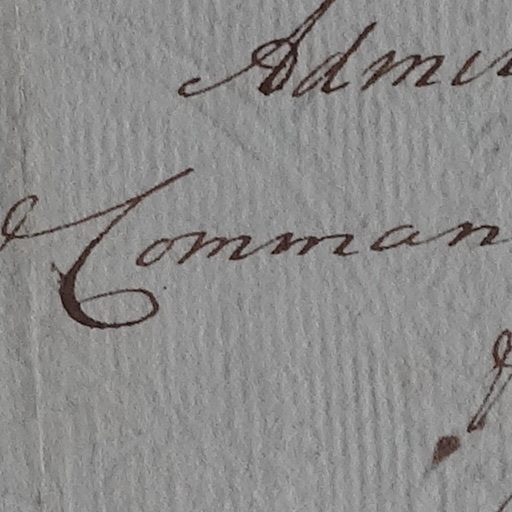 Admi
Comman